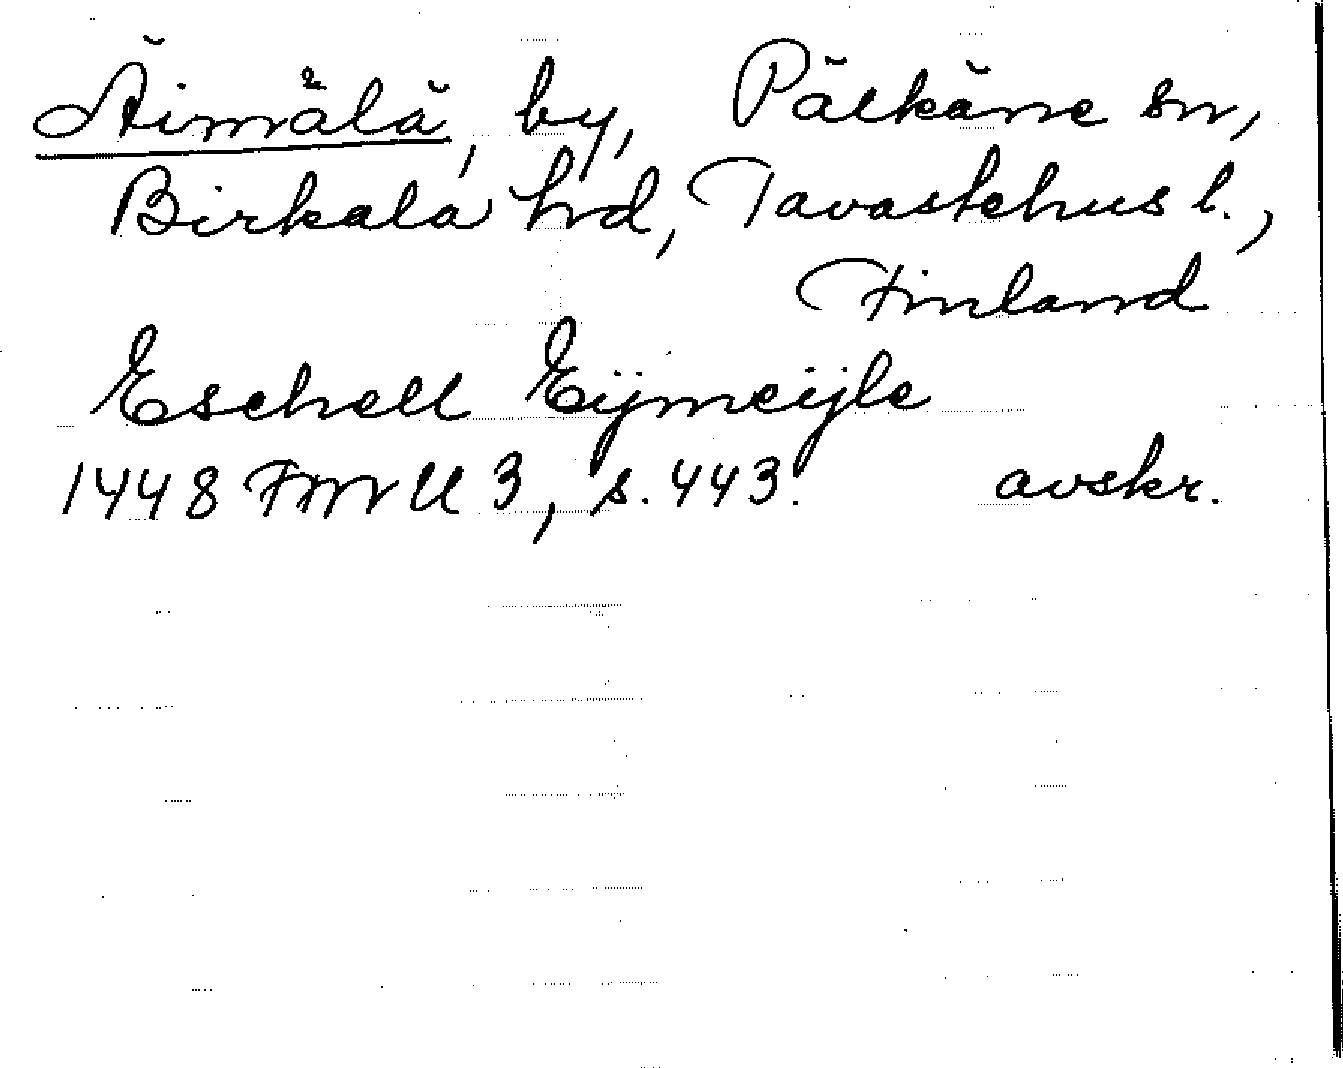 Äimälä, by, Pälkäne sn,
Birkala hrd, Tavastehus l.,
Finland
Eschell Eijmeijle
1448 FMU 3, s. 443. avskr.